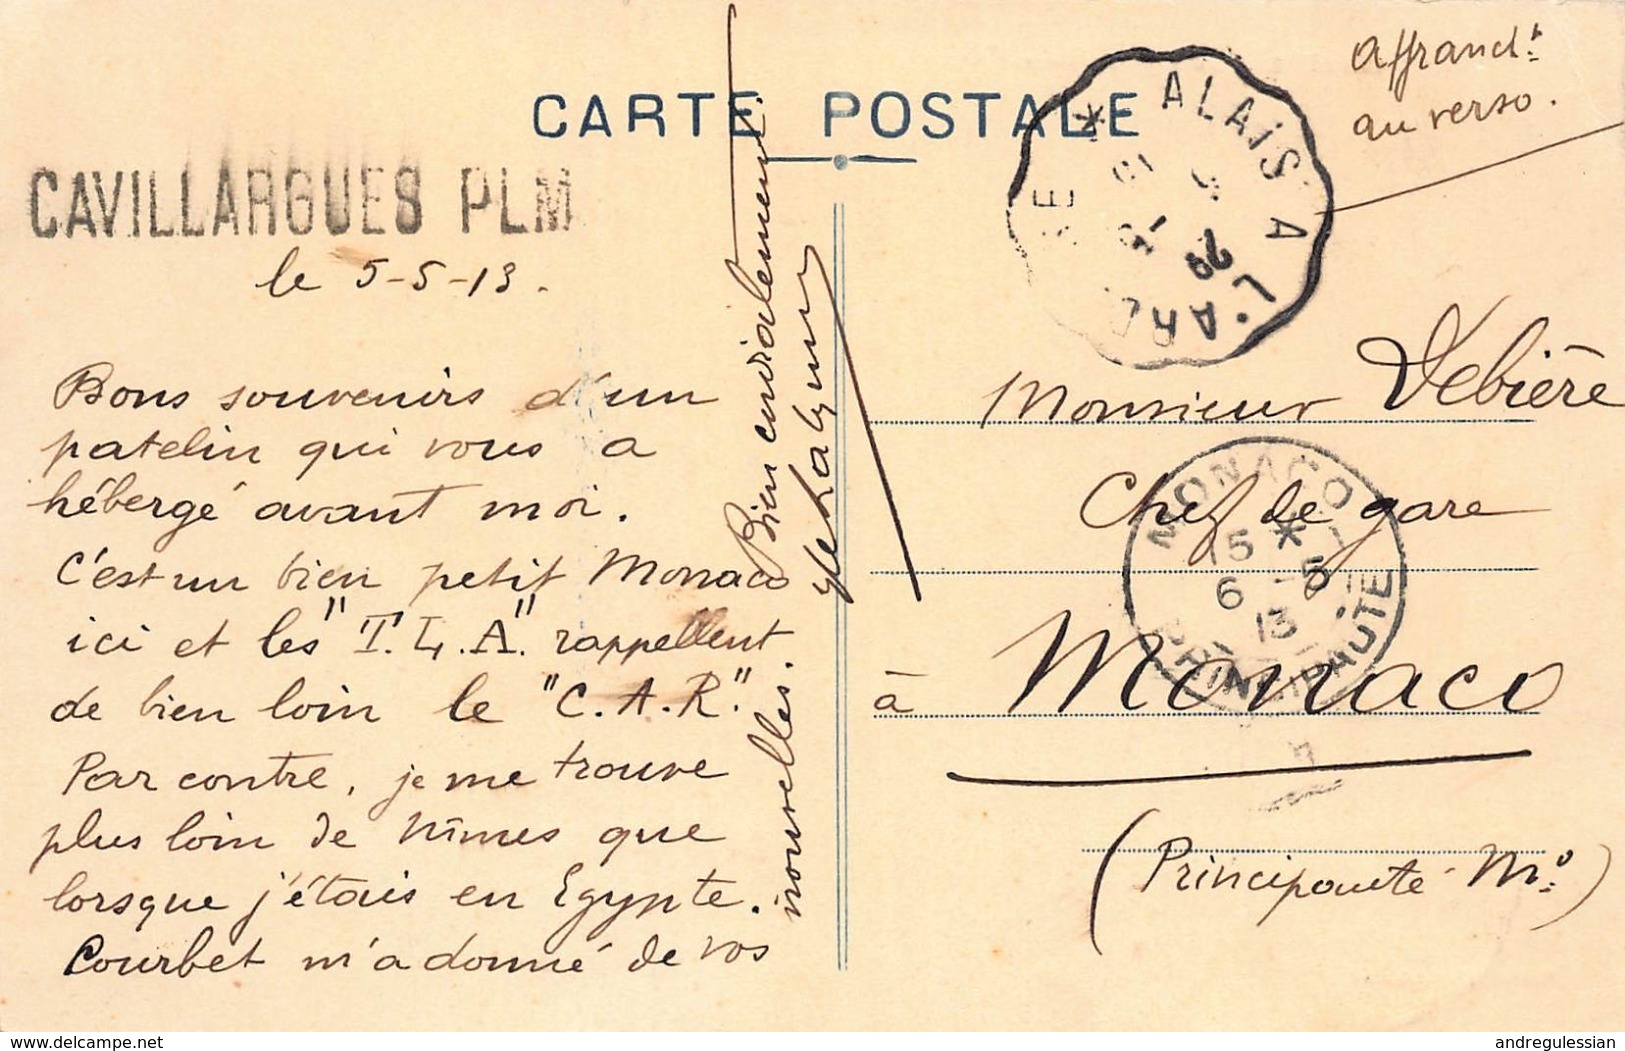 CARTE POSTALE
affrand.t
au verso.
CAVILLARGUES PLM
le 5-5-13.
Bons souvenirs d'un
patelin qui vous a
hébergé avant moi.
C'est un bien petit Monaco
ici et les "T.L.A." rappellent
de bien loin le "C.A.R."
Par contre, je me trouve
plus loin de Nîmes que
lorsque j'étais en Egypte.
Courbet m'a donné de vos
nouvelles.
Bien cordialement.
ALAIS A L'ARD
Monsieur Debière
Chef de gare
à Monaco
(Principauté Mo)
MONACO
15 *
6 -5
13
PRINCIPAUTÉ
www.delcampe.net
andregulessian